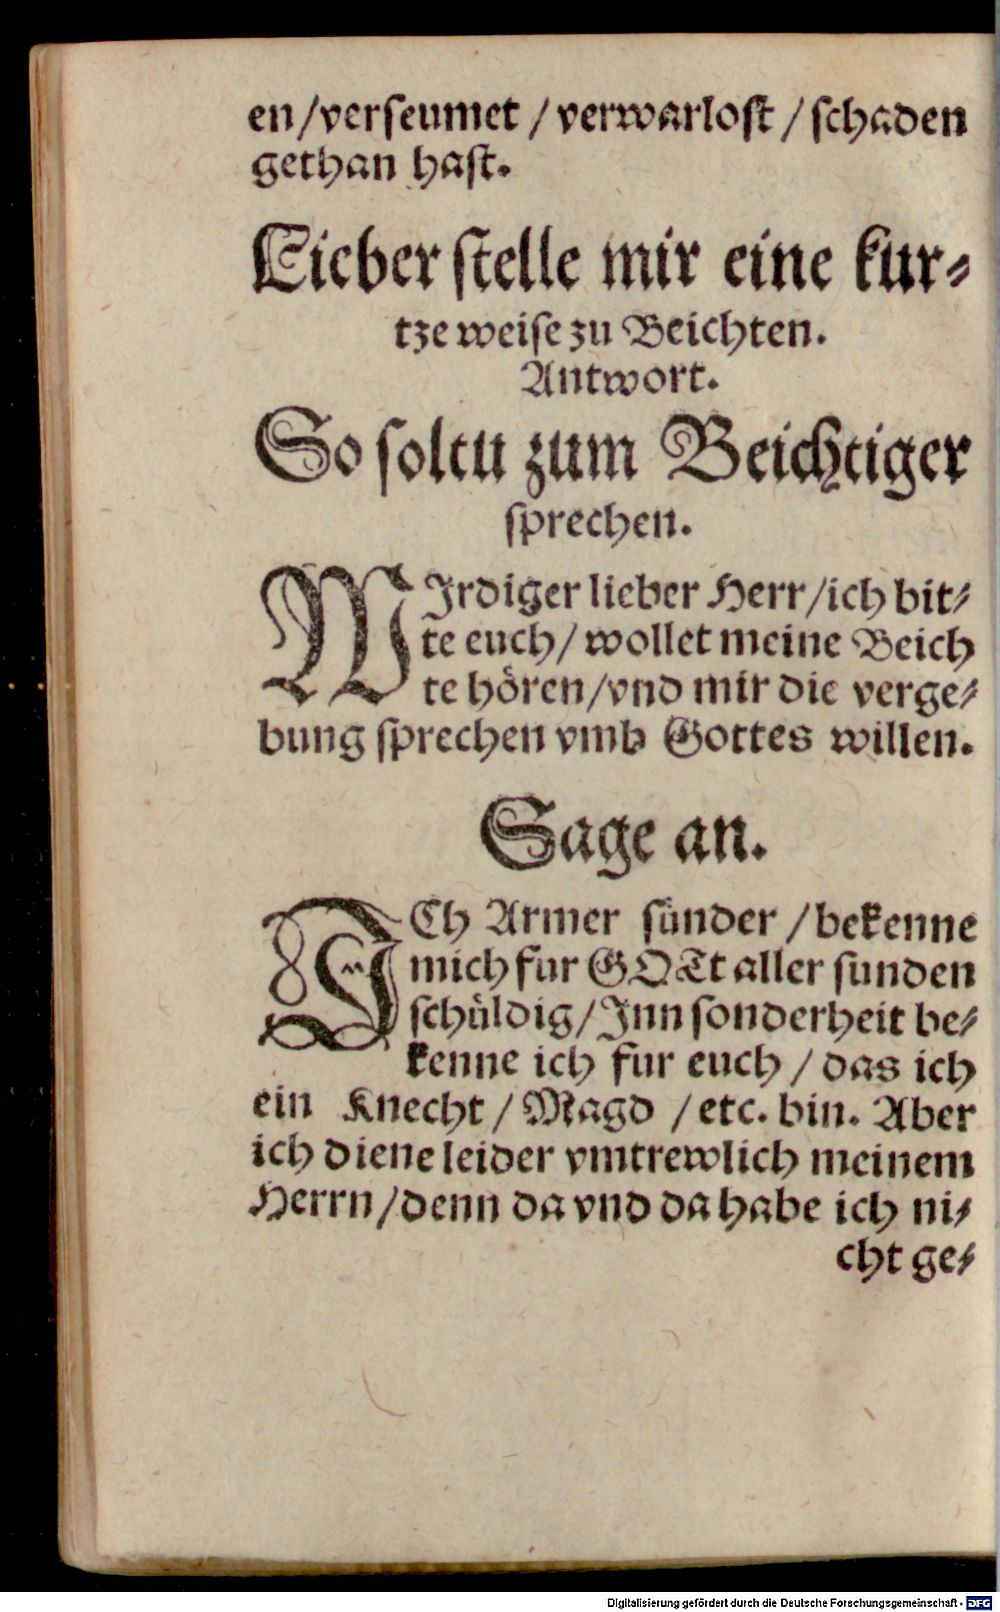 en/verseumet / verwarlost / schaden
gethan hast.
Lieber stelle mir eine kur-
tze weise zu Beichten.
Antwort.
So soltu zum Beichtiger
sprechen.
WIrdiger lieber Herr/ich bit-
te euch/ wollet meine Beich
te hören/vnd mir die verge-
bung sprechen vmb Gottes willen.
Sage an.
ICh Armer sünder / bekenne
mich fur GOTt aller sunden
schüldig/Inn sonderheit be-
kenne ich fur euch / das ich
ein Knecht / Magd / etc. bin. Aber
ich diene leider vmtrewlich meinem
Herrn/denn da vnd da habe ich ni-
cht ge-
Digitalisierung gefördert durch die Deutsche Forschungsgemeinschaft - DFG